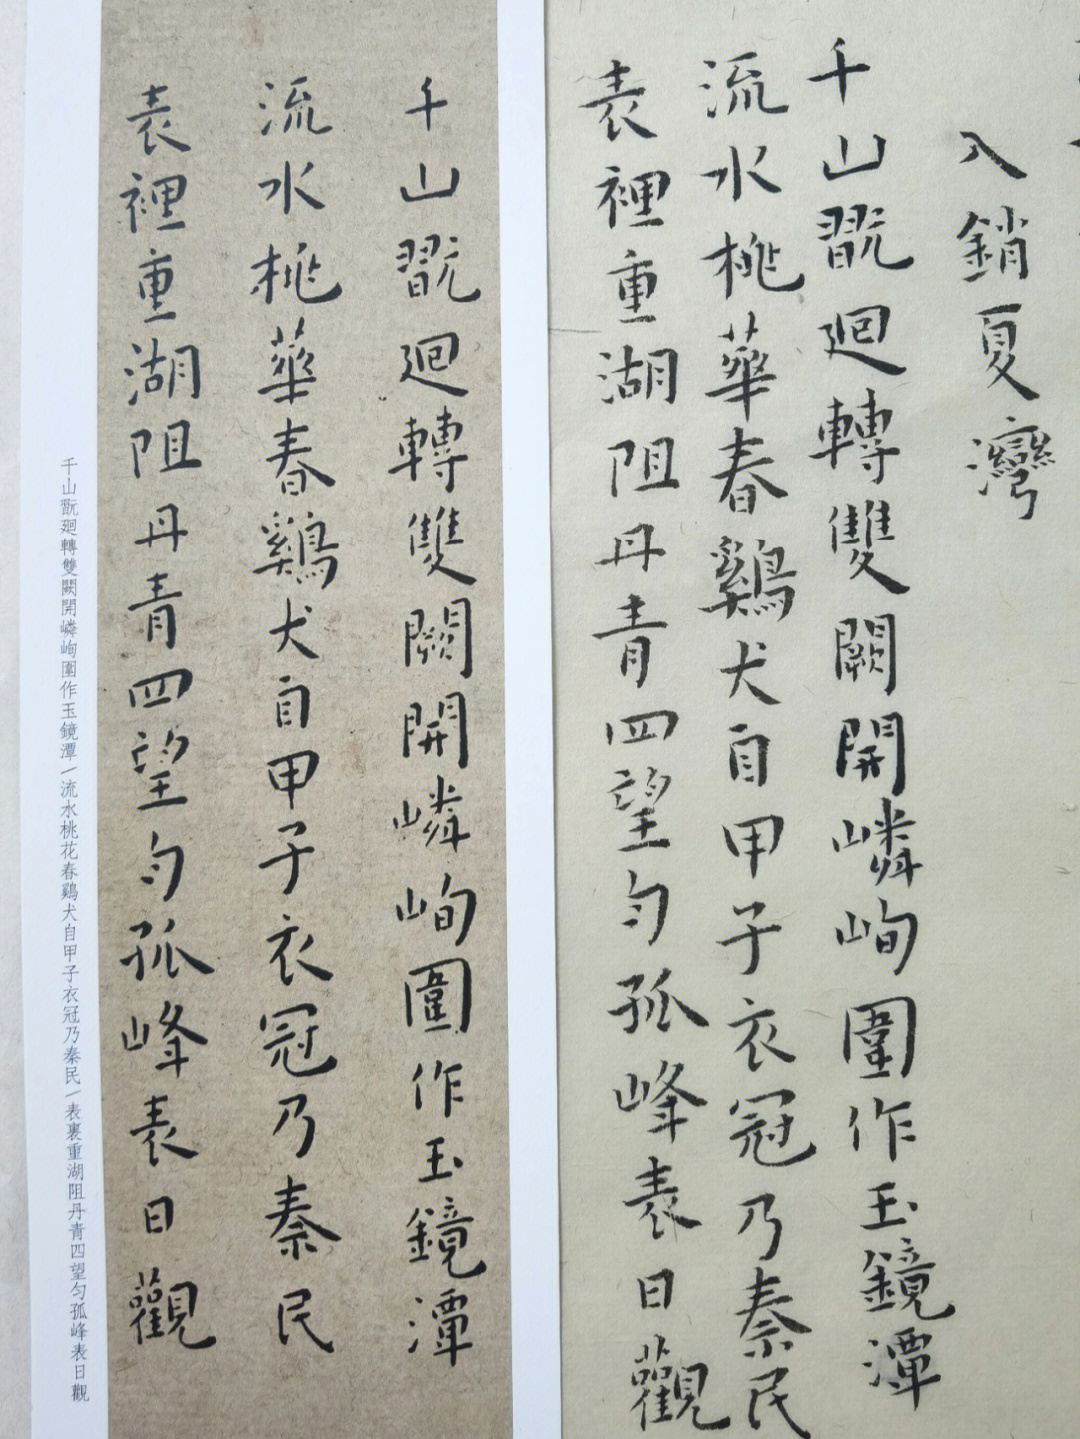 入銷夏灣
千山翫廻轉雙闕開嶙峋圍作玉鏡潭
流水桃華春鷄犬自甲子衣冠乃秦民
表裡重湖阻丹青四望勻孤峰表日觀
千山翫廻轉雙闕開嶙峋圍作玉鏡潭
流水桃華春鷄犬自甲子衣冠乃秦民
表裡重湖阻丹青四望勻孤峰表日觀
千山翫廻轉雙闕開嶙峋圍作玉鏡潭／流水桃花春鷄犬自甲子衣冠乃秦民／表裏重湖阻丹青四望勻孤峰表日觀